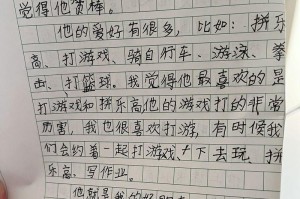 觉得他真棒。
他的爱好有很多，比如：拼乐
高、打游戏、骑自行车、游泳、拳
击、打篮球。我觉得他最喜欢的是
打游戏和拼乐高他的游戏打的非常
厉害，我也很喜欢打游，有时候我
们会约着一起打游戏、下去玩、拼
乐高、写作业。
他就是我的好朋